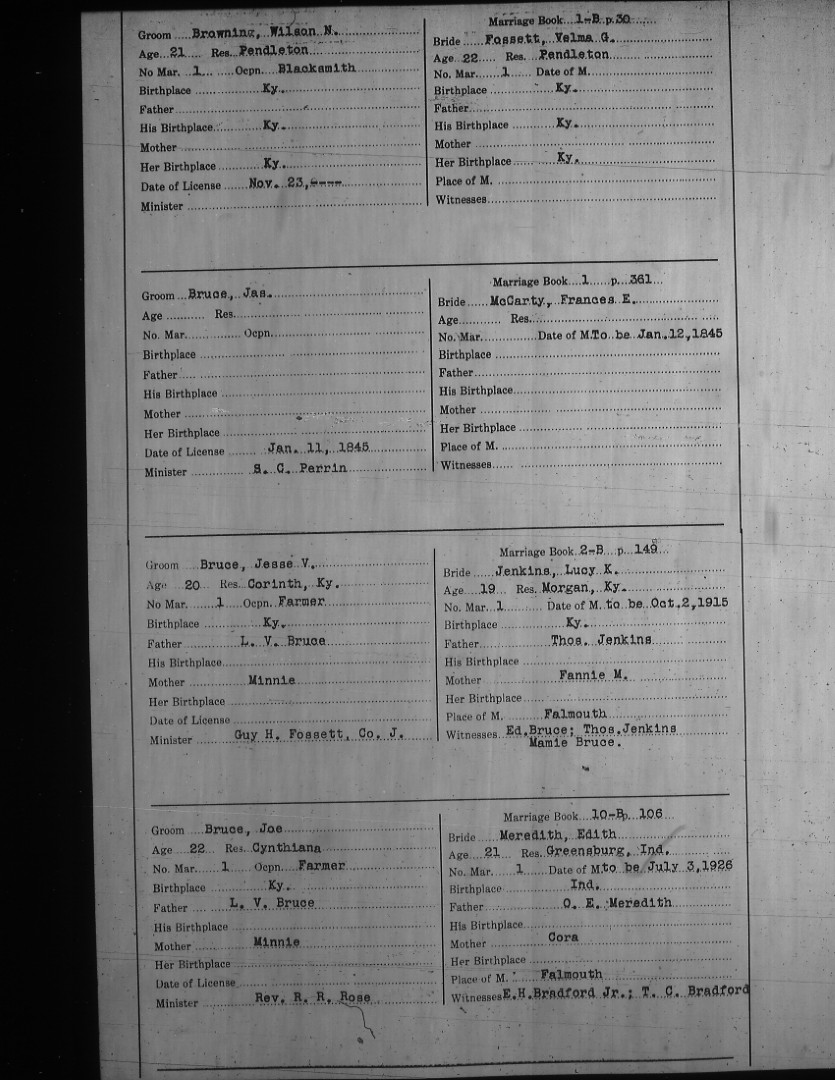 Groom Browning, Wilson N.
Age 21 Res. Pendleton
No Mar. 1 Ocpn. Blacksmith
Birthplace Ky.
Father
His Birthplace Ky.
Mother
Her Birthplace Ky.
Date of License Nov. 23, ----
Minister
Marriage Book 1-B p. 30
Bride Fossett, Velma G.
Age 22 Res. Pendleton
No. Mar. 1 Date of M.
Birthplace Ky.
Father
His Birthplace Ky.
Mother
Her Birthplace Ky.
Place of M.
Witnesses
Groom Bruce, Jas.
Age Res.
No. Mar. Ocpn.
Birthplace
Father
His Birthplace
Mother
Her Birthplace
Date of License Jan. 11, 1845
Minister S. C. Perrin
Marriage Book 1 p. 361
Bride McCarty, Frances E.
Age Res.
No. Mar. Date of M. To be Jan. 12, 1845
Birthplace
Father
His Birthplace
Mother
Her Birthplace
Place of M.
Witnesses
Groom Bruce, Jesse V.
Age 20 Res. Corinth, Ky.
No Mar. 1 Ocpn. Farmer
Birthplace Ky.
Father L. V. Bruce
His Birthplace
Mother Minnie
Her Birthplace
Date of License
Minister Guy H. Fossett, Co. J.
Marriage Book 2-B p. 149
Bride Jenkins, Lucy K.
Age 19 Res. Morgan, Ky.
No. Mar. 1 Date of M. to be Oct. 2, 1915
Birthplace Ky.
Father Thos. Jenkins
His Birthplace
Mother Fannie M.
Her Birthplace
Place of M. Falmouth
Witnesses Ed. Bruce; Thos. Jenkins
Mamie Bruce.
Groom Bruce, Joe
Age 22 Res. Cynthiana
No. Mar. 1 Ocpn. Farmer
Birthplace Ky.
Father L. V. Bruce
His Birthplace
Mother Minnie
Her Birthplace
Date of License
Minister Rev. R. R. Rose
Marriage Book 10-B p. 106
Bride Meredith, Edith
Age 21 Res. Greensburg, Ind.
No. Mar. 1 Date of M. to be July 3, 1926
Birthplace Ind.
Father O. E. Meredith
His Birthplace
Mother Cora
Her Birthplace
Place of M. Falmouth
Witnesses E.H. Bradford Jr.; T. C. Bradford